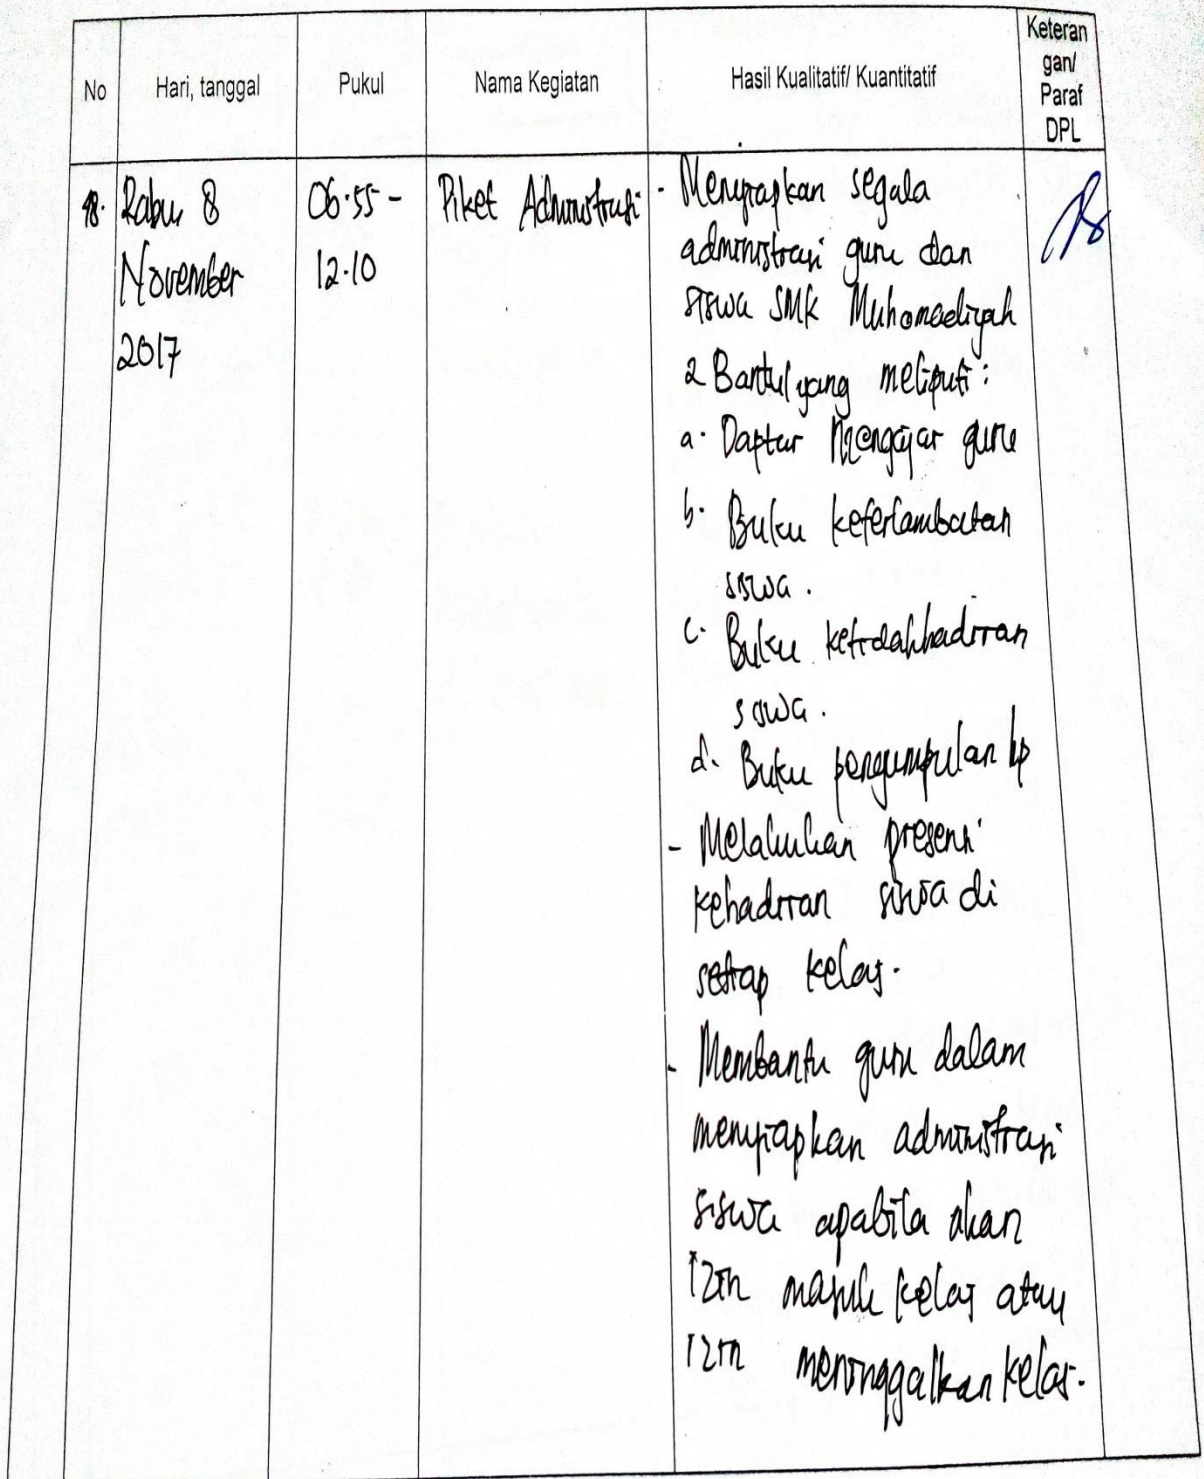 No
Hari, tanggal
Pukul
Nama Kegiatan
Hasil Kualitatif/ Kuantitatif
Keteran
gan/
Paraf
DPL
Rabu 8
November
2017
06.55 -
12.10
Piket Administrasi
- Menyiapkan segala
administrasi guru dan
siswa SMK Muhamadiyah
2 Bantul yang meliputi :
a. Daptar Mengajar guru
b. Buku keterlambatan
siswa .
c. Buku ketidakhadiran
siswa .
d. Buku pengumpulan hp
- Melakukan presensi
kehadiran siswa di
setiap kelas.
- Membantu guru dalam
menyiapkan administrasi
siswa apabila akan
izin masuk kelas atau
izin meninggalkan kelas.